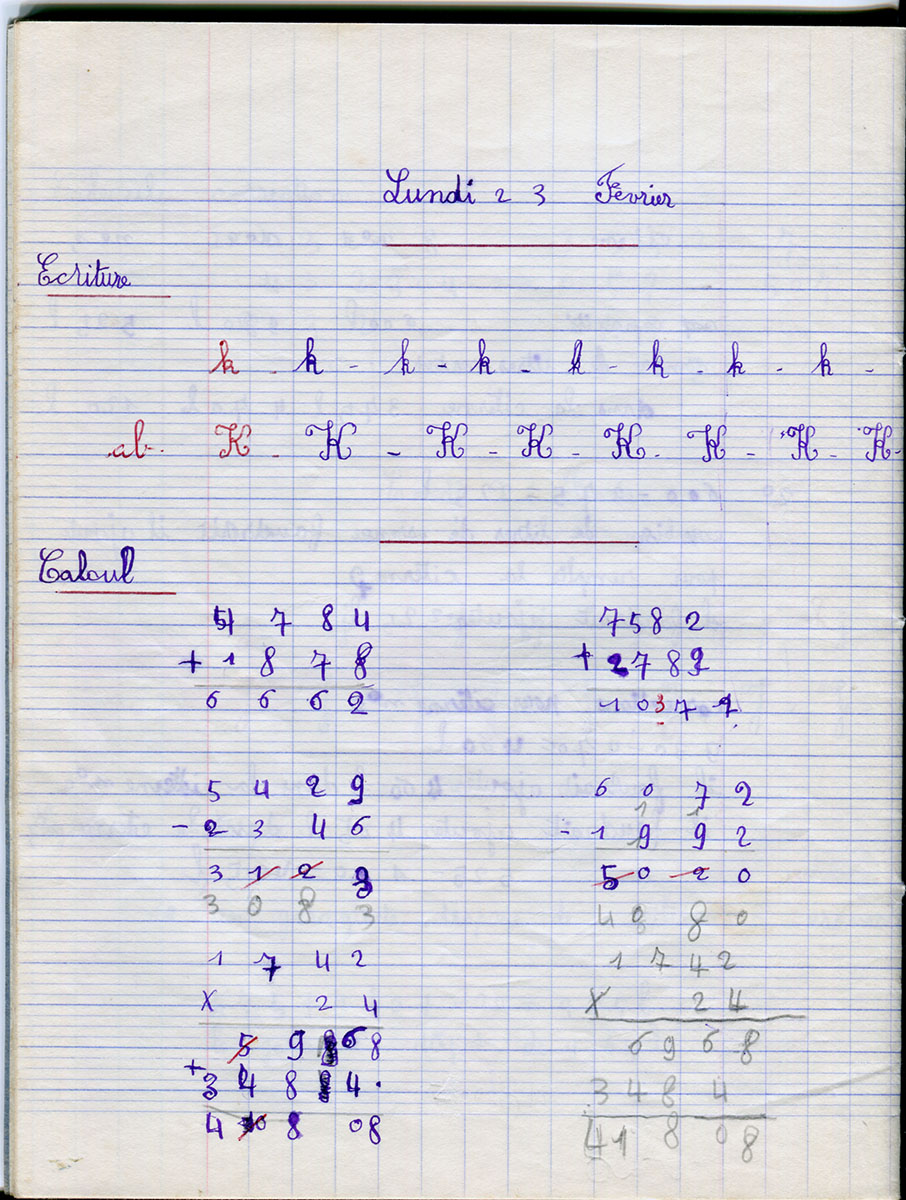 Lundi 23 Février
Ecriture
k - k - k - k - k - k - k - k -
al. K - K - K - K - K - K - K - K -
Calcul
4 7 8 4
7 5 8 2
+ 1 8 7 8
+ 2 7 8 9
6 6 6 2
1 0 3 7 1
5 4 2 9
6 0 7 2
- 2 3 4 6
1 1
- 1 9 9 2
3 1 2 3
5 0 2 0
3 0 8 3
4 0 8 0
1 7 4 2
1 7 4 2
X 2 4
X 2 4
5 9 6 8
6 9 6 8
+ 3 4 8 4 .
3 4 8 4
4 0 8 0 8
4 1 8 0 8